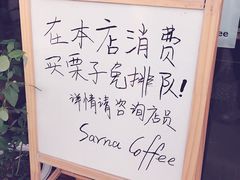 在本店消费
买栗子免排队!
详情请咨询店员
Sarna Coffee